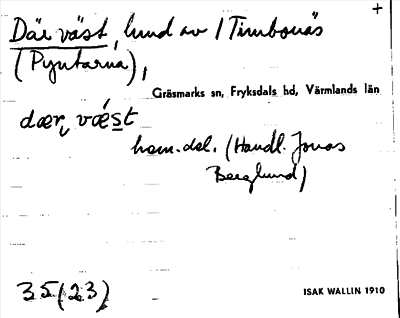 +
Där väst, hmd av 1 Timbonäs
(Pyntarna),
Gräsmarks sn, Fryksdals hd, Värmlands län
dær, vǽst
hem.del. (Handl. Jonas
Berglund)
35(23)
ISAK WALLIN 1910